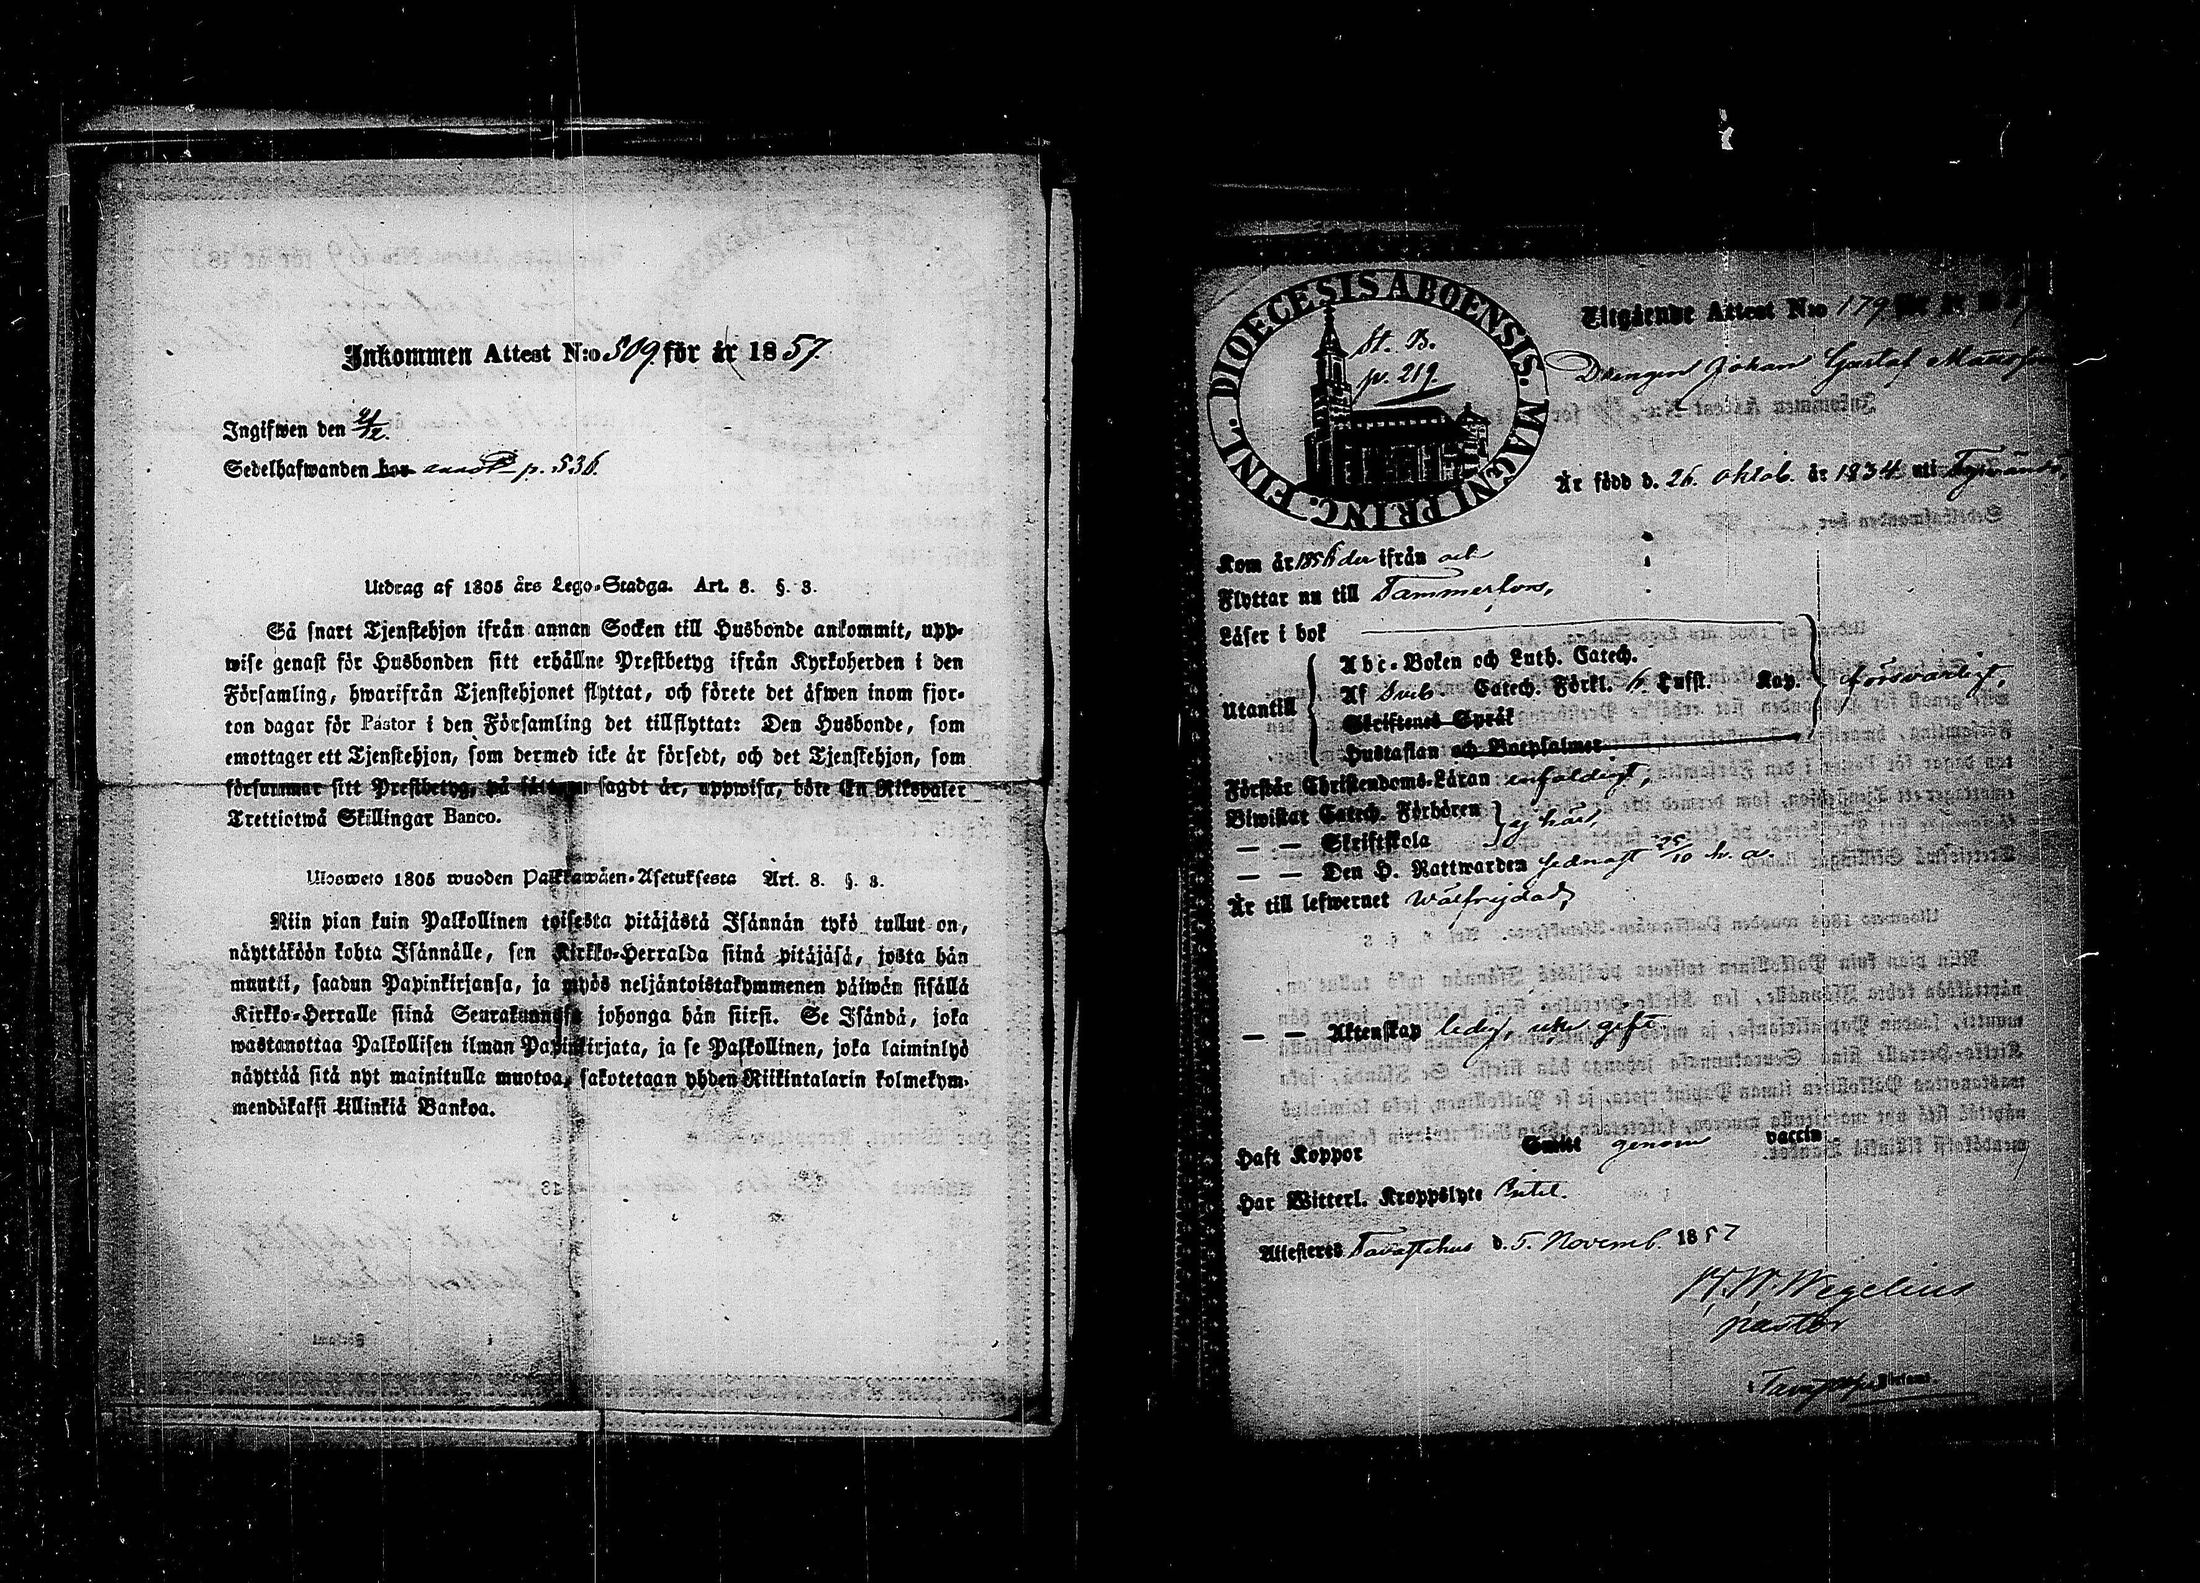 Inkommen Attest N:o 509. för år 1857.
Ingifwen den 4/12.
Sedelhafwanden hor annot p. 536.
Utdrag af 1805 års Lego-Stadga. Art. 8. §. 3.
Så snart Tjenstehjon ifrån annan Socken till Husbonde ankommit, upp-
wise genast för Husbonden sitt erhållne Prestbetyg ifrån Kyrkoherden i den
Församling, hwarifrån Tjenstehjonet flyttat, och förete det äfwen inom fjor-
ton dagar för Pastor i den Församling det tillflyttat: Den Husbonde, som
emottager ett Tjenstehjon, som dermed icke är försedt, och det Tjenstehjon, som
försummar sitt Prestbetyg, på sätt nu sagdt är, uppwisa, böte En Riksdaler
Trettiotwå Skillingar Banco.
Ulosweto 1805 wuoden Palkkawäen-Asetuksesta Art. 8. §. 3.
Niin pian kuin Palkollinen toisesta pitäjästä Isännän tykö tullut on,
näyttäköön kohta Isännälle, sen Kirkko-Herralda siinä pitäjäsä, josta hän
muutti, saadun Papinkirjansa, ja myös neljäntoistakymmenen päiwän sisällä
Kirkko-Herralle siinä Seurakunnasa johonga hän siirsi. Se Isändä, joka
wastanottaa Palkollisen ilman Papinkirjata, ja se Palkollinen, joka laiminlyö
näyttää sitä nyt mainitulla muotoa, sakotetaan yhden Riikintalarin kolmekym-
mendäkaksi killinkiä Bankoa.
FINL. DIOECESIS ABOENSIS. MAGNI PRINC.
St. B.
p. 219.
Utgående Attest N:o 179 för år 18
Drengen Johan Gustaf
Är född d. 26. Oktob. år 1834 uti
Kom år 1856 der ifrån och
Flyttar nu till Tammerfors,
Läser i bok
Utantill
Abc-Boken och Luth. Catech.
Af Svib. Catech. Förkl. Kap.
Skriftenes Språk
Hustaflan och Botpsalmer
försvarligt,
Förstår Christendoms-Läran enfaldigt,
Biwistat Catech. Förhören
— — Skriftskola
ej här,
— — Den H. Nattwarden sednast 25/10 h. a.
Är till lefwernet wälfrejdad,
— — Äktenskap ledig,
Haft Koppor Smitt genom vaccin
Har Witterl. Kroppslyte Intet.
Attesteres Tavastehus d. 5. Novemb. 1857
Wegelius
pastor